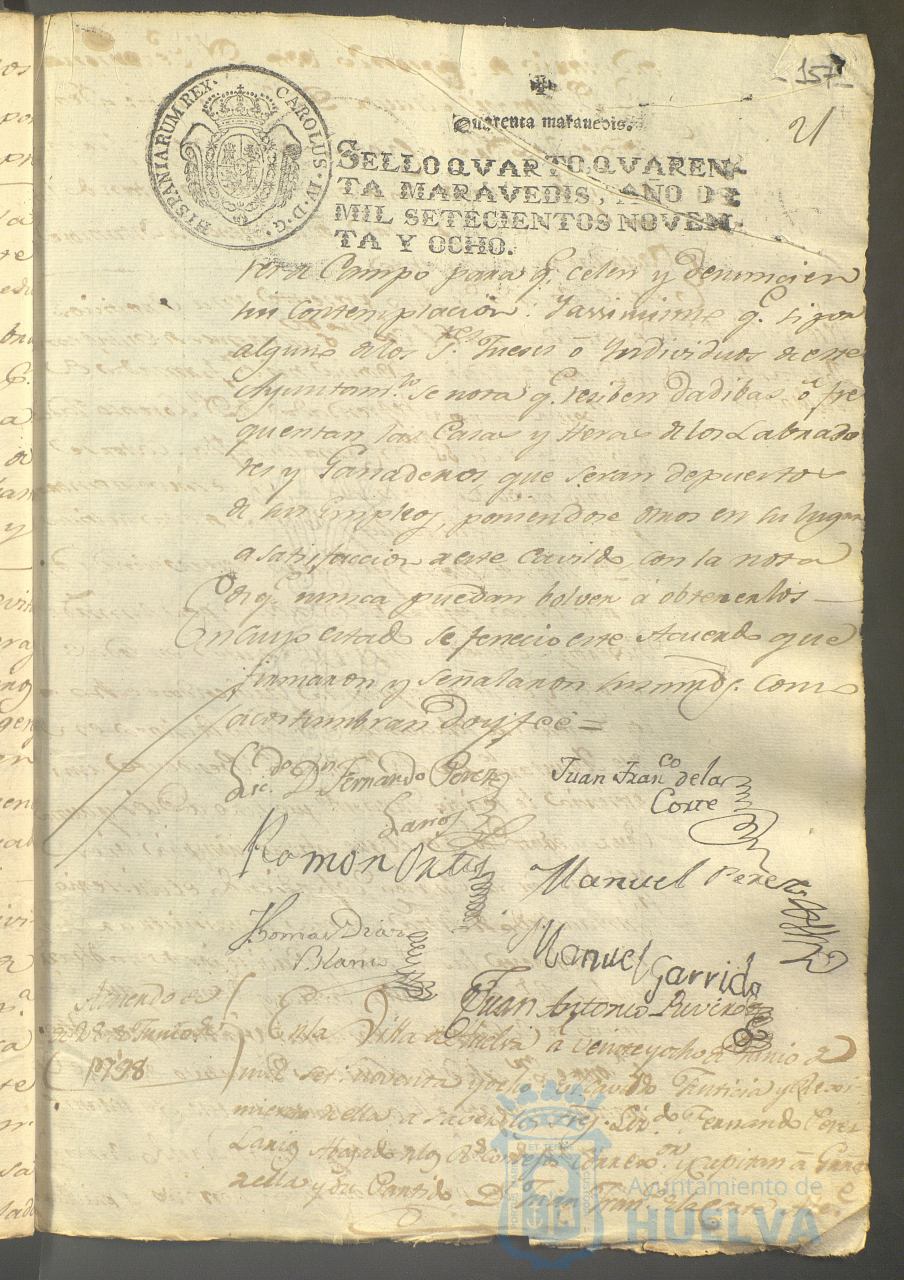 157
21
HISPANIARUM REX. CAROLUS. IV. D. G.
Quarenta maravedis.
SELLO QVARTO, QVAREN-
TA MARAVEDIS, AÑO DE
MIL SETECIENTOS NOVEN-
TA Y OCHO.
Campo para q.e celen y denuncien
sin contemplacion: Yassimismo q.e si por
alguno delos S.res Jueses ô Yndividuos de este
Ayuntam.to se nota q.e resiben dadibas, ô fre
quentan las Casas y Heras delos Labrado
res y Ganaderos que seran depuestos
de sus Empleos, poniendose otros en su lugar
a satisfaccion de este Cavildo con la nota
de q.e nunca puedan bolver â obtenerlos
En cuyo estado se fenecio este Acuerdo que
firmaron y señalaron sus mrds. como
acostumbran doy feê =
Lic.do D.n Fernando Perez
Larios
Juan Fran.co dela
Corte
Ramon Ortis
Manuel Perez
Thomas Diaz
Blanco
Manuel Garrido
Juan Antonio Rivero
Acuerdo de
28 de Junio de
1798
En la Villa de Huelva a veinte y ocho de Junio de
mil set.s noventa y ocho el Cavildo Justicia y Rexi
miento de ella a saver los Sres. Liz.do D.n Fernando Perez
Larios Abogado de los R.s Consejos Correxi.or y Capitan â Guerra
de ella y su Partido D.n Juan Fran.co dela Corte
Ayuntamiento de
HUELVA